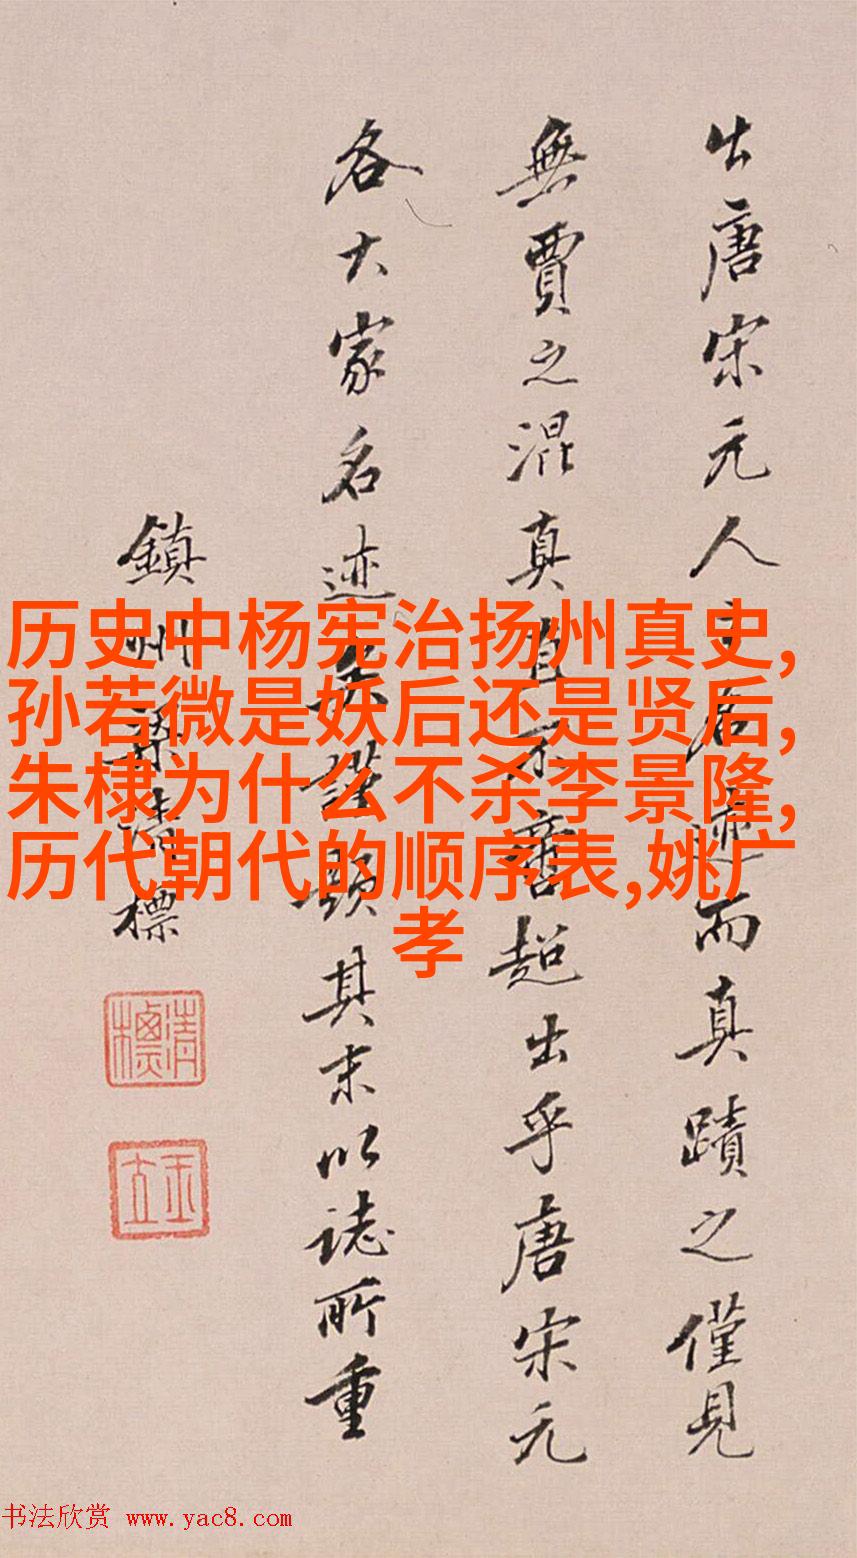 出唐宋元人名迹而真蹟之僅見
無賈之混真直不啻超出乎唐宋元
各大家名迹矣謹題其末以誌所重
鎮州梁清標
清標
玉立
历史中杨宪治扬州真史,
孙若微是妖后还是贤后,
朱棣为什么不杀李景隆,
历代朝代的顺序表,姚广
孝
书法欣赏 www.yac8.com